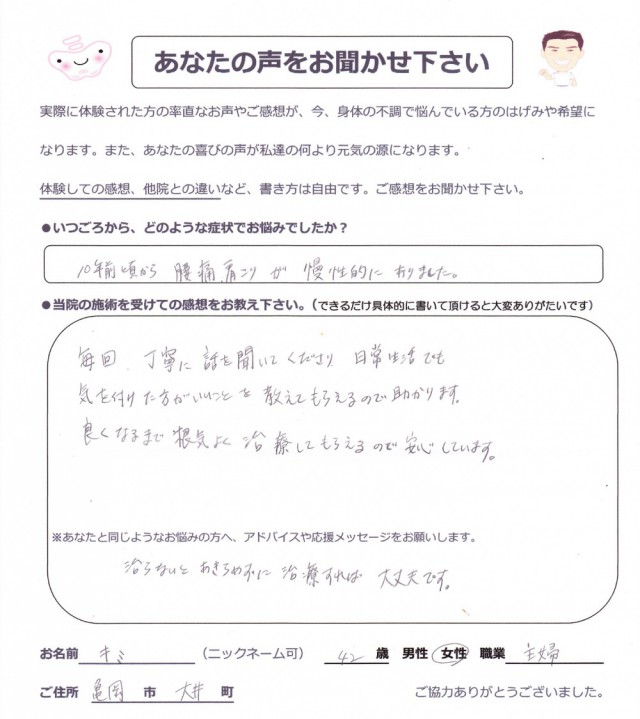 あなたの声をお聞かせ下さい
実際に体験された方の率直なお声やご感想が、今、身体の不調で悩んでいる方のはげみや希望に
なります。また、あなたの喜びの声が私達の何より元気の源になります。
体験しての感想、他院との違いなど、書き方は自由です。ご感想をお聞かせ下さい。
●いつごろから、どのような症状でお悩みでしたか？
10年前頃から 腰痛、肩こりが 慢性的に ありました。
●当院の施術を受けての感想をお教え下さい。（できるだけ具体的に書いて頂けると大変ありがたいです）
毎回 丁寧に 話を聞いてくださり 日常生活でも
気を付けた方がいいことを 教えてもらえるので助かります。
良くなるまで 根気よく 治療してもらえるので 安心しています。
※あなたと同じようなお悩みの方へ、アドバイスや応援メッセージをお願いします。
治らないと あきらめずに 治療すれば 大丈夫です。
お名前 キミ （ニックネーム可） 42 歳 男性 女性 職業 主婦
ご住所 亀岡 市 大井 町 ご協力ありがとうございました。